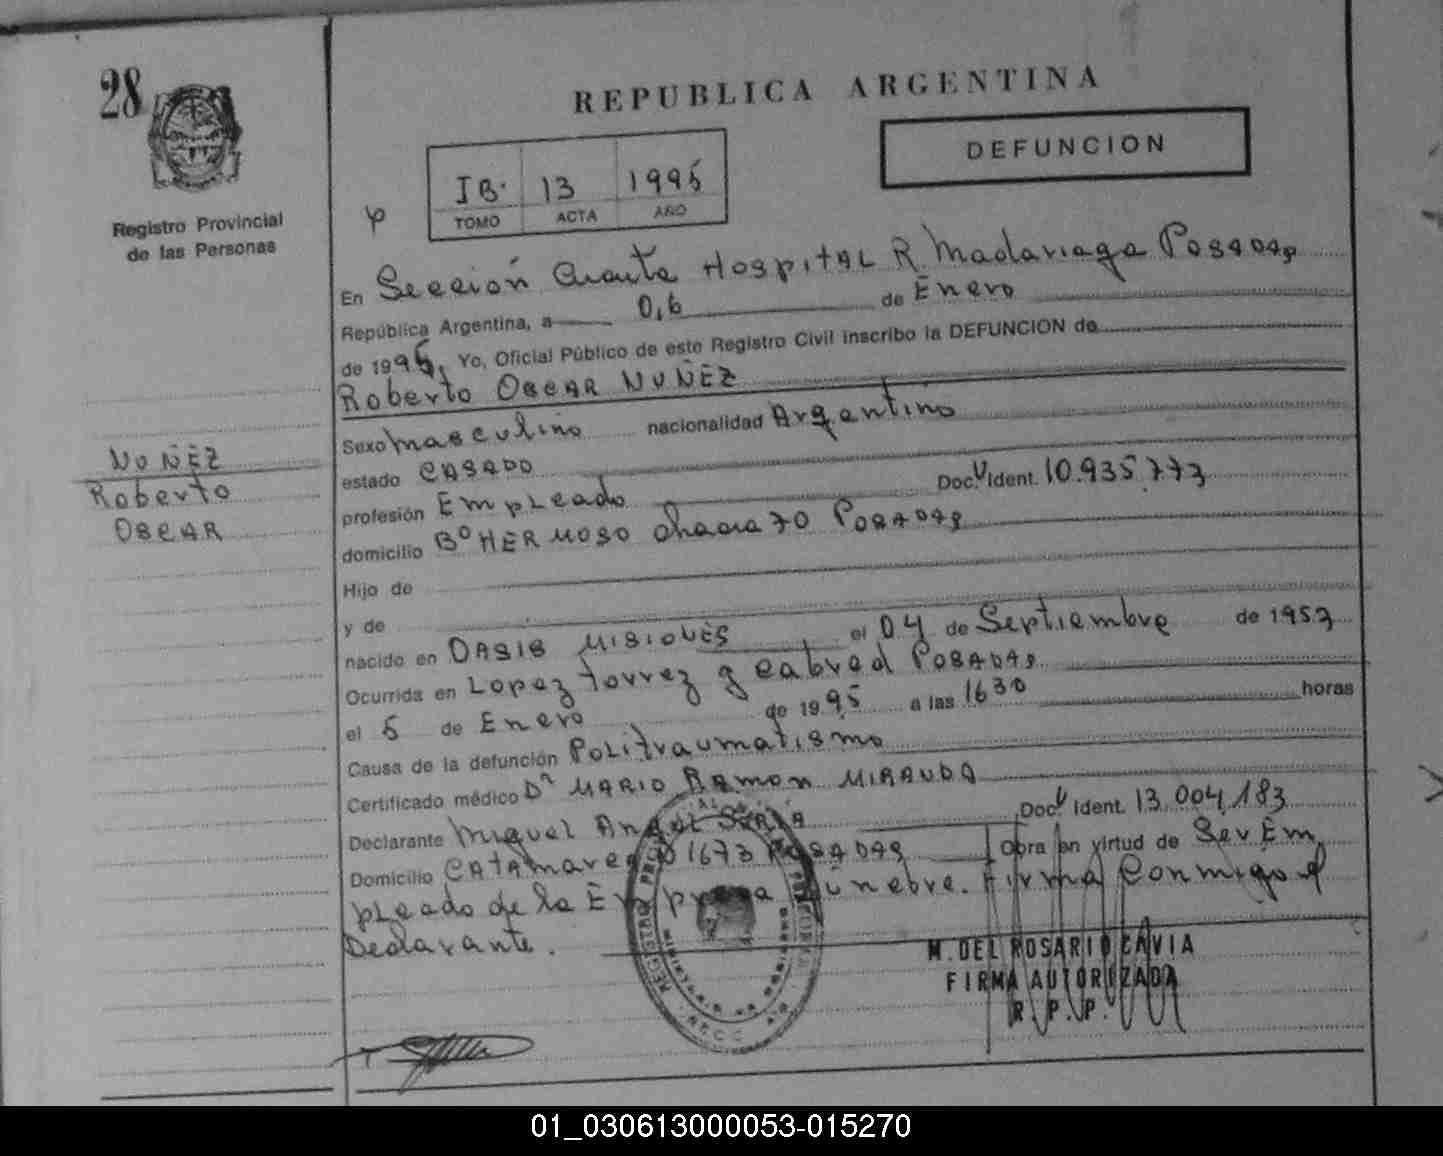 28
REPUBLICA ARGENTINA
DEFUNCION
IB. 13 1995
TOMO ACTA AÑO
Registro Provincial
de las Personas
En Sección Cuarta Hospital R. Madariaga Posadas
República Argentina, a 0,6 de Enero
de 1995, Yo, Oficial Público de este Registro Civil inscribo la DEFUNCION de
Roberto Oscar NUÑEZ
Sexo masculino nacionalidad Argentino
NUÑEZ
Roberto
Oscar
estado CASADO
profesión Empleado Doc. U Ident. 10.935.773
domicilio Bº HERMOSO chacra 70 Posadas
Hijo de
y de
nacido en OASIS MISIONES el 04 de Septiembre de 1953
Ocurrida en Lopez torrez y cabred Posadas
el 5 de Enero de 1995 a las 1630 horas
Causa de la defunción Politraumatismo
Certificado médico Dr MARIO RAMON MIRANDA
Declarante Miguel Angel Doc. U Ident. 13.004.183
Domicilio CATAMARCA 1673 POSADAS Obra en virtud de Ser Em
pleado de la Empresa Fúnebre. Firma Conmigo el
Declarante.
M. DEL ROSARIO CAVIA
FIRMA AUTORIZADA
R. P. P.
01_030613000053-015270